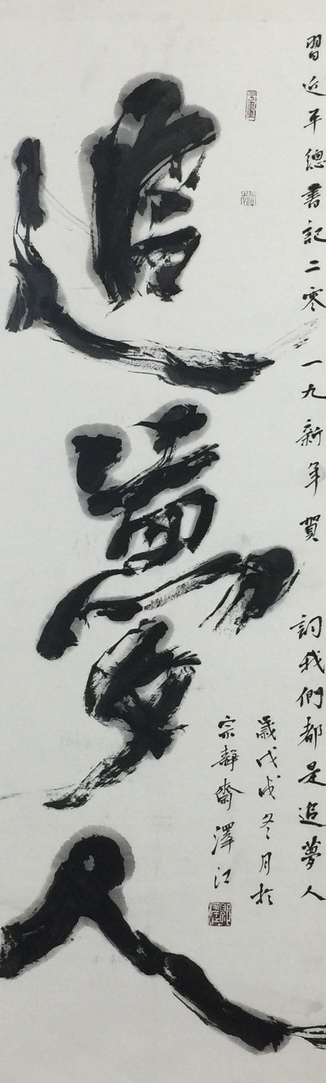 追夢人
習近平總書記二零一九新年賀詞我們都是追夢人
歲戊戌冬月於
宗靜齋澤江